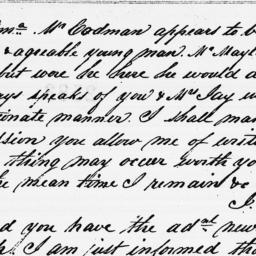 m.a Mr Codman appears to b
& ageable young man. Mr Mayt
but were he here he would a
ys speaks of you & Mrs Jay w
onate manner. I shall mar
ssion you allow me of writ
thing may occur worth yo
he mean time I remain &c
d you have the ad.al new
I am just informed tha